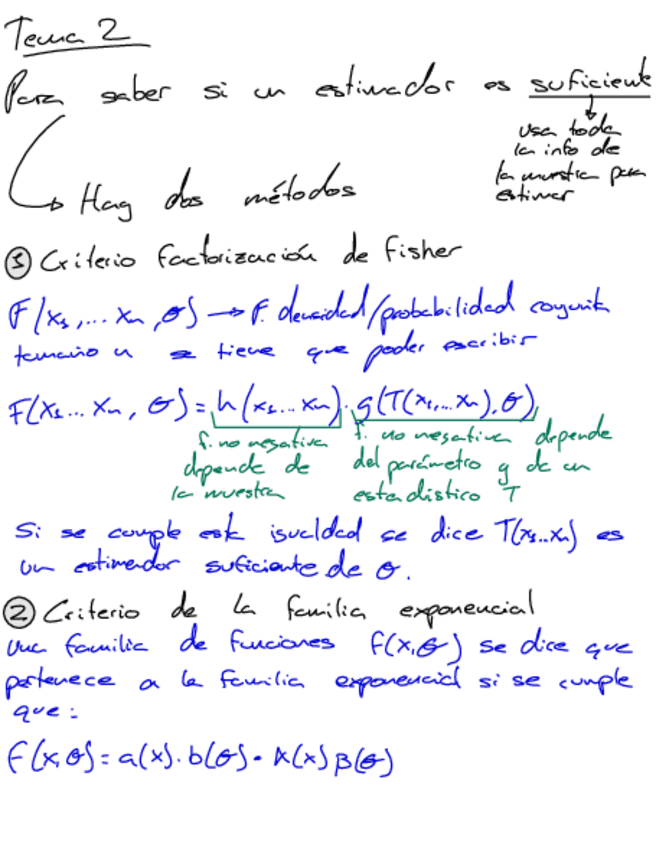 Tema 2
Para saber si un estimador es suficiente
usa toda
la info de
la muestra para
estimar
Hay dos métodos
① Criterio factorización de Fisher
F(x₁,... xₙ, θ) → f. densidad/probabilidad conjunta
tamaño n se tiene que poder escribir
F(x₁... xₙ, θ) = h(x₁...xₙ) · g(T(x₁,...xₙ), θ)
f. no negativa
depende de
la muestra
f. no negativa depende
del parámetro y de un
estadístico T
Si se cumple esta igualdad se dice T(x₁...xₙ) es
un estimador suficiente de θ.
② Criterio de la familia exponencial
Una familia de funciones f(x,θ) se dice que
pertenece a la familia exponencial si se cumple
que:
F(x,θ) = a(x) · b(θ) · A(x) β(θ)